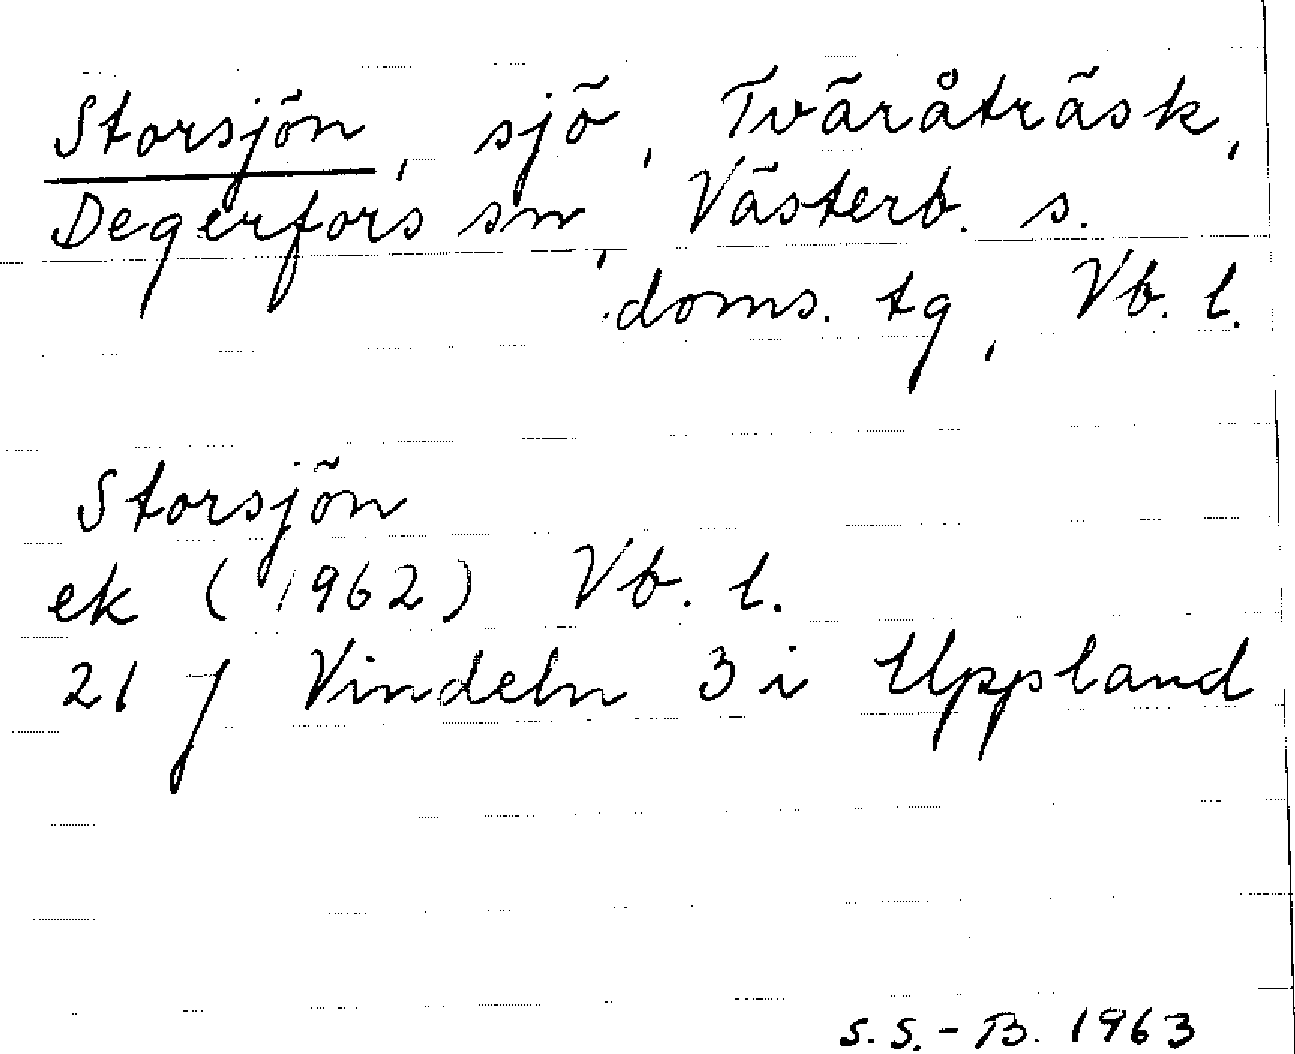 Storsjön, sjö, Tväråträsk,
Degerfors sn, Västerb. s.
doms. tg, Vb. l.
Storsjön
ek (1962) Vb. l.
21 J Vindeln 3 i Uppland
S. S.-B. 1963